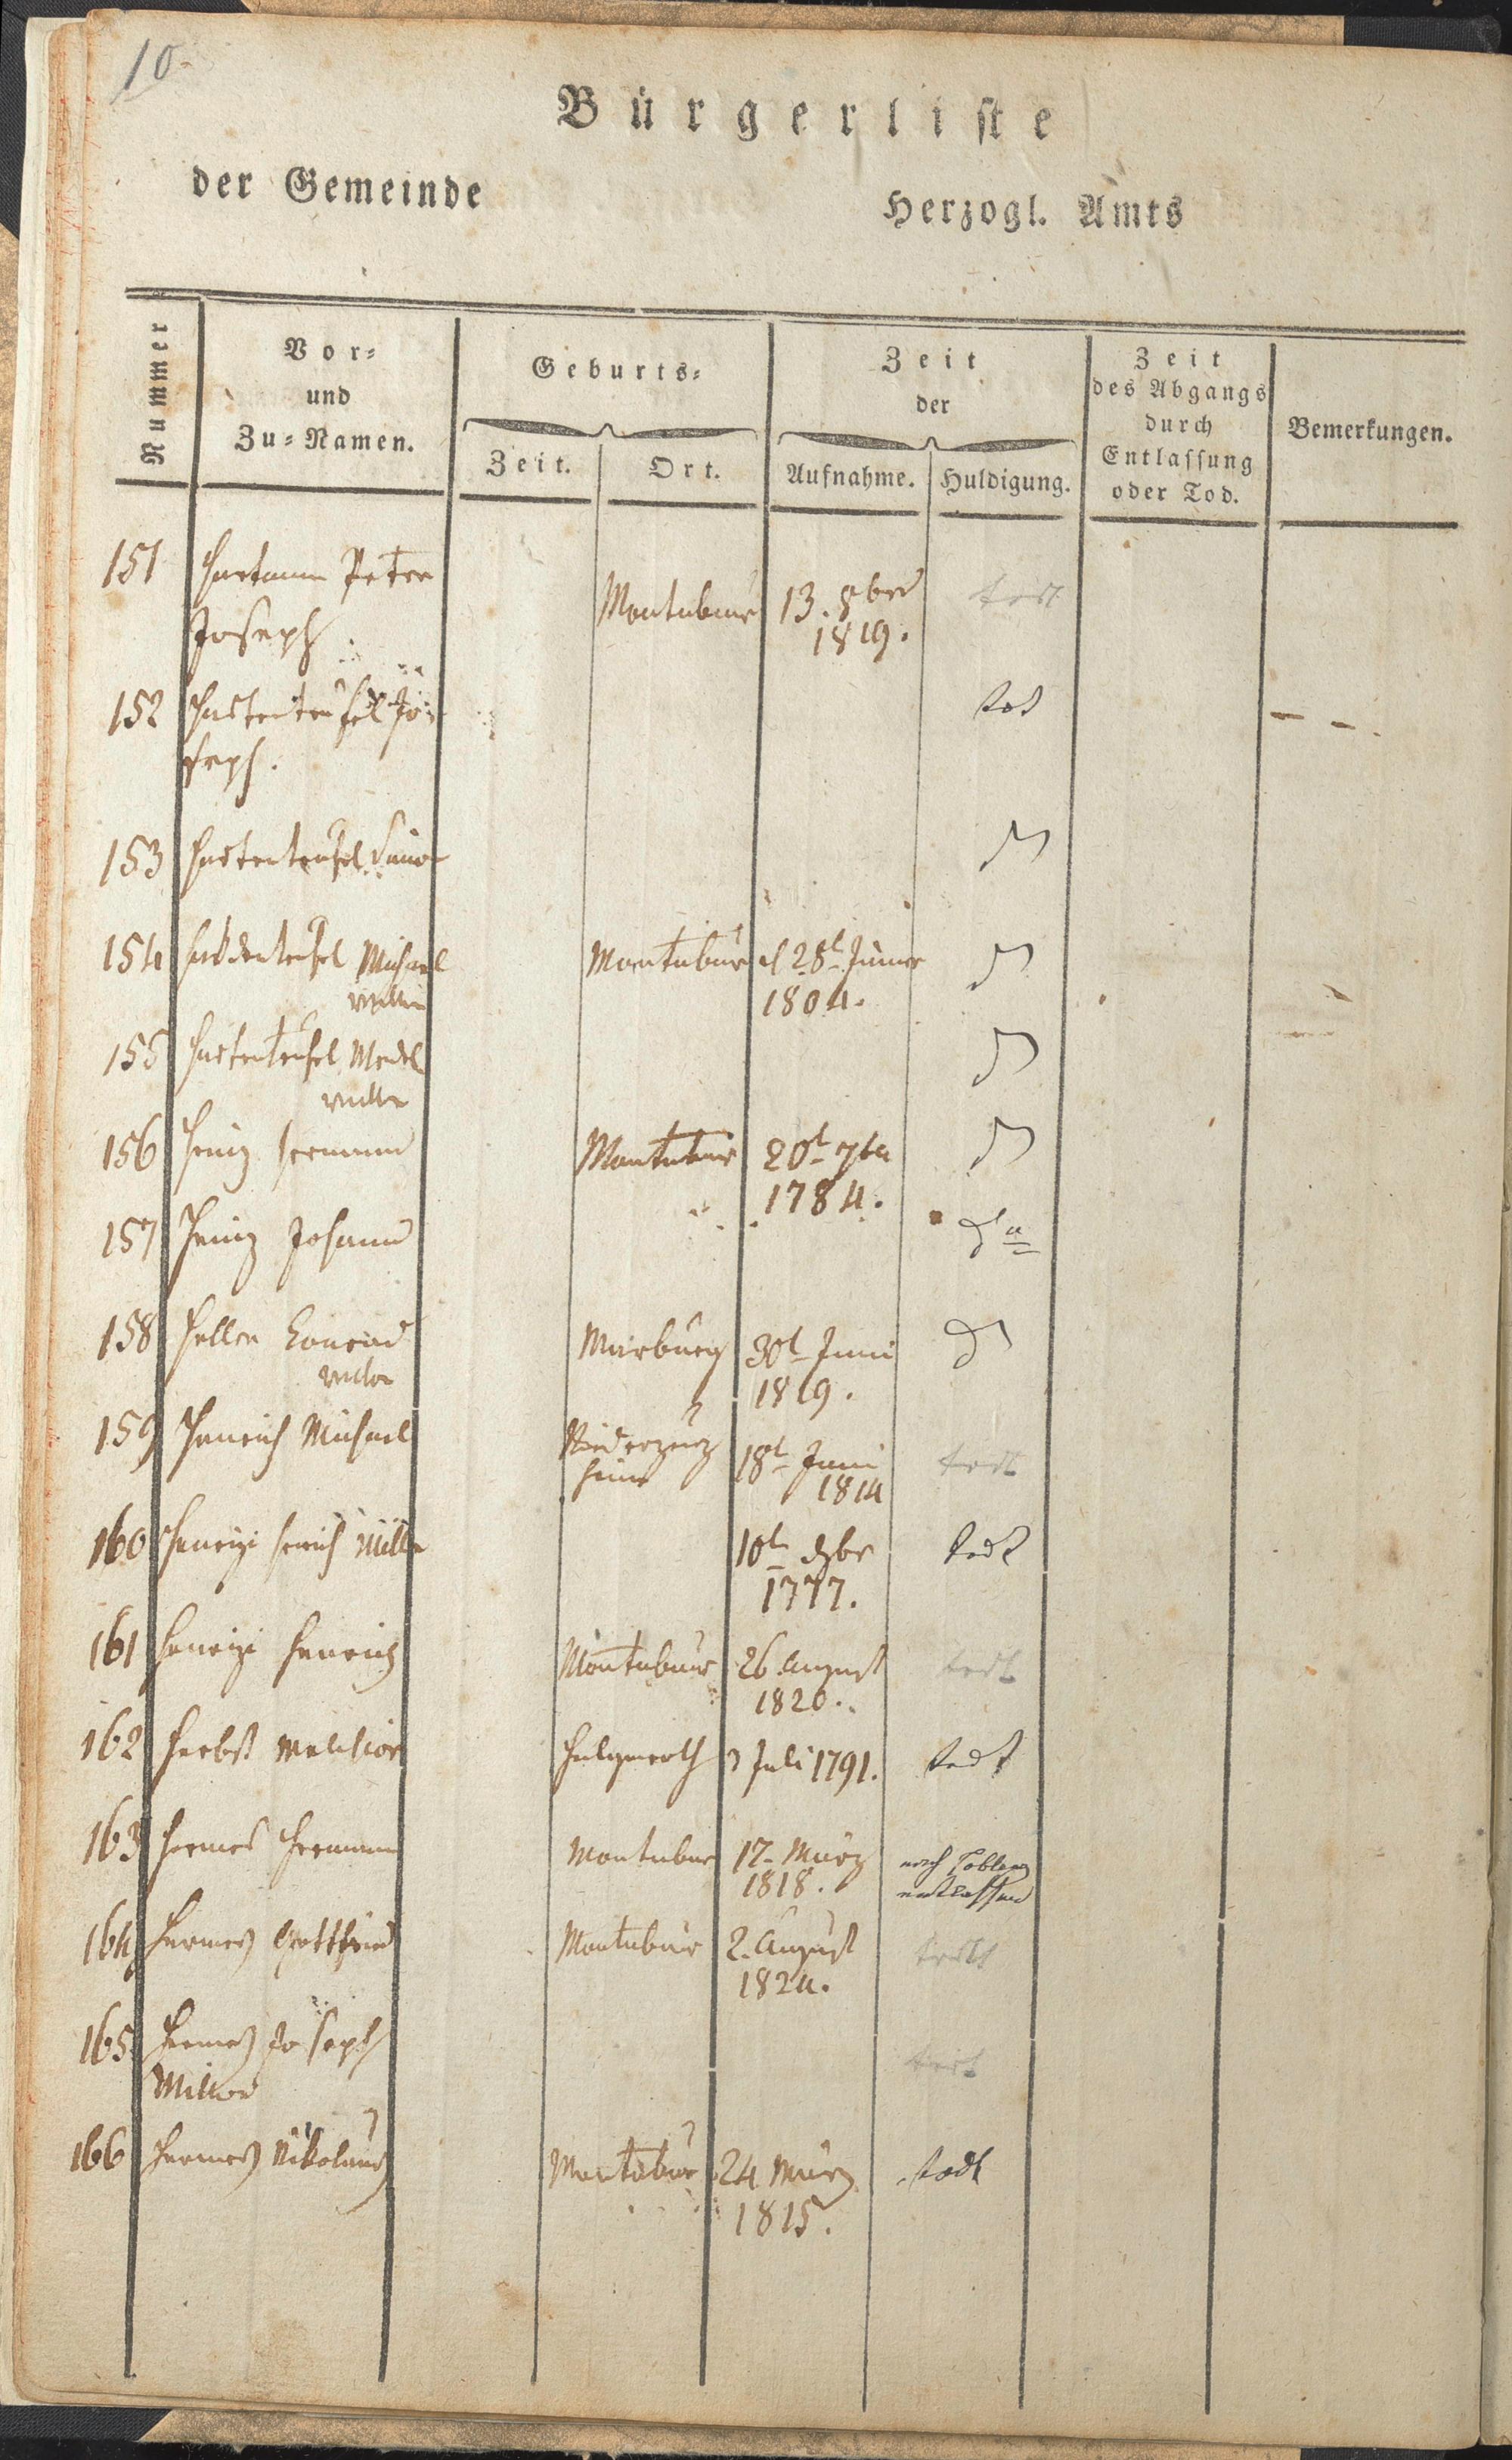 10
Bürgerliste
der Gemeinde Herzogl. Amts
Nummer
Vor-
und
Zu-Namen.
Geburts-
Zeit. Ort.
Zeit
der
Aufnahme. Huldigung.
Zeit
des Abgangs
durch
Entlassung
oder Tod.
Bemerkungen.
151 Hartmann Peter
Joseph. Montabaur 13. 8ber 1819. todt
152 Hastenteufel Jo-
seph. tod
153 Hastenteufel
154 Hastenteufel Michael Montabaur d 28t Jänner
1804.
155 Hastenteufel
156 Heinz Hermann Montabaur 20t 7br
1784.
157 Heinz Johann
158 Heller Conrad Marburg 30t Juni
1819.
159 Henrich Michael
heim 18t Juni
1814 todt
160 Henrizi Henrich 10t
1777. todt
161 Henrizi Henrich Montabaur 26 August
1820. todt
162 Herbst Melchior 3 Juli 1791. todt
163 Hermes Hermann Montabaur 17. März
1818. nach Coblenz
entlassen
164 Hermes Gottfried Montabaur 2. August
1824. todt
165 Hermes Joseph
todt
166 Hermes Nikolaus Montabaur 24 März
1815. todt